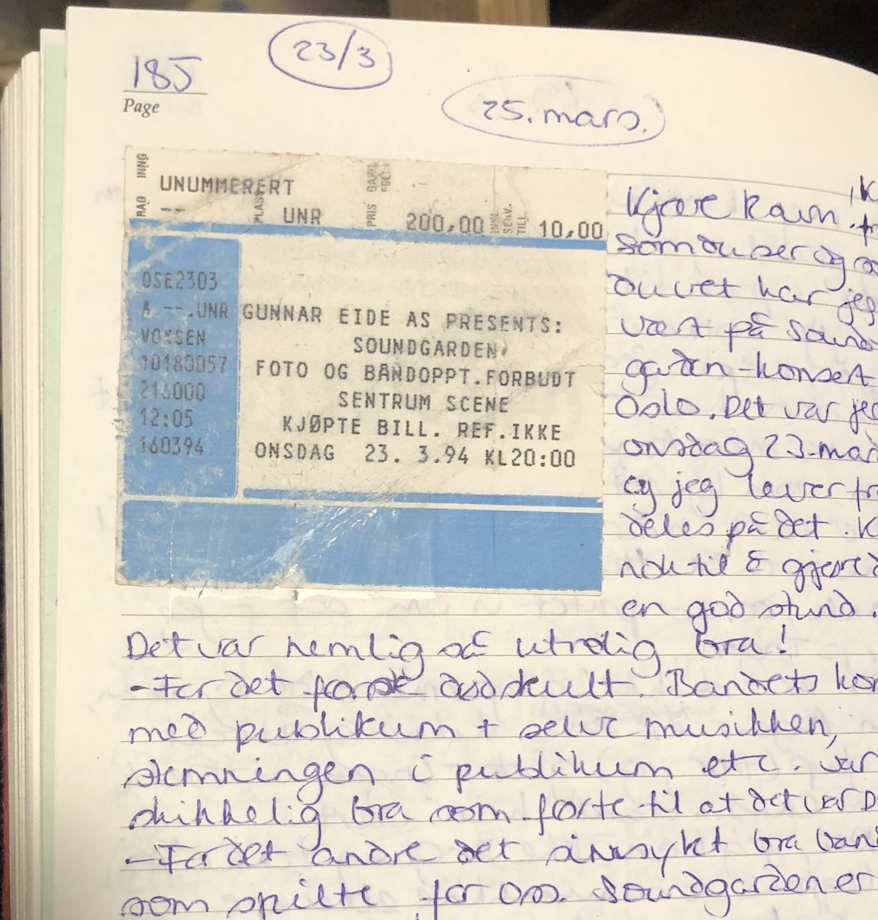 185
Page
23/3
25. mars.
RAD INNG
UNUMMERERT
-- PLASS UNR PRIS 200,00 SERV. TILL. 10,00
OSE2303
A --.UNR
VOKSEN
10180057
216000
12:05
160394
GUNNAR EIDE AS PRESENTS:
SOUNDGARDEN
FOTO OG BANDOPPT.FORBUDT
SENTRUM SCENE
KJØPTE BILL. REF.IKKE
ONSDAG 23. 3.94 KL20:00
Kjære Ravn
som du ser og
du vet har jeg
vært på Sound
garden-konsert
Oslo. Det var jeg
onsdag 23. mar
og jeg lever fr
deles på det. K
nok til å gjøre d
en god stund.
Det var nemlig så utrolig bra!
- For det første dødskult. Bandets kon
med publikum + selve musikken,
stemningen i publikum etc. var
skikkelig bra som førte til at det var D
- For det andre det sinnsykt bra band
som spilte for oss. Soundgarden er